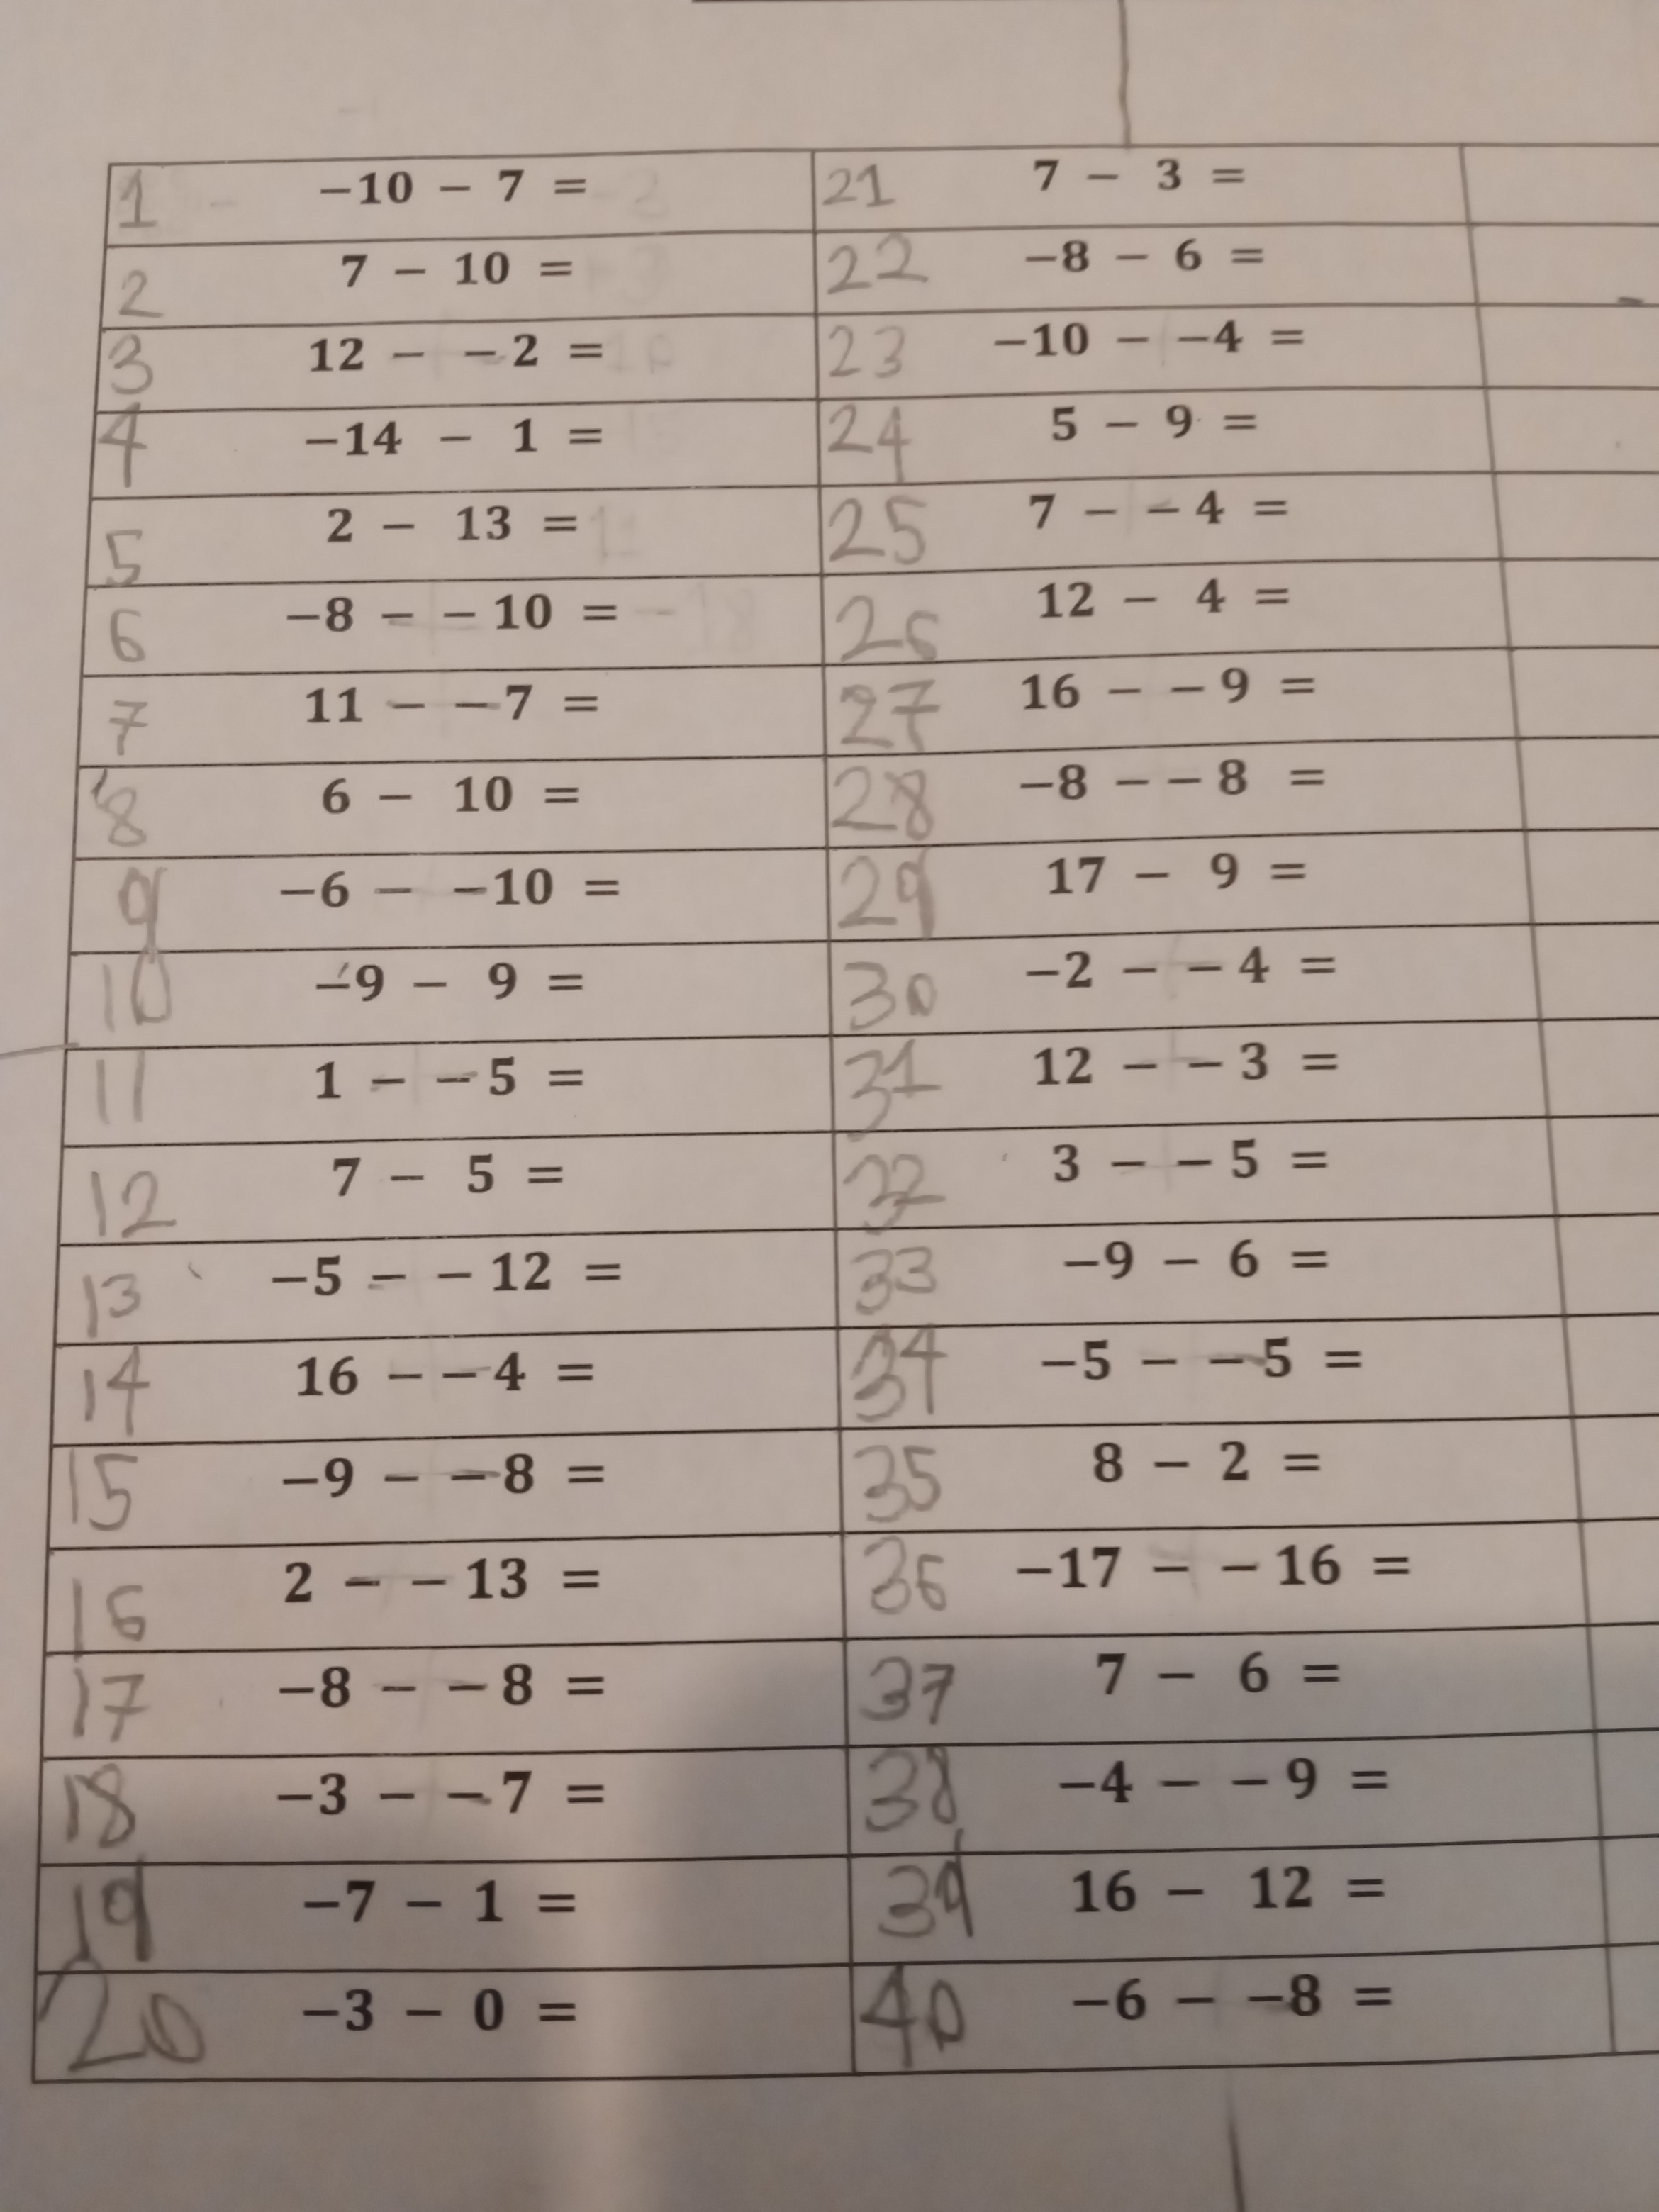 1 −10 − 7 =
2 7 − 10 =
3 12 − −2 =
4 −14 − 1 =
5 2 − 13 =
6 −8 − −10 =
7 11 − −7 =
8 6 − 10 =
9 −6 − −10 =
10 −9 − 9 =
11 1 − −5 =
12 7 − 5 =
13 −5 − −12 =
14 16 − −4 =
15 −9 − −8 =
16 2 − −13 =
17 −8 − −8 =
18 −3 − −7 =
19 −7 − 1 =
20 −3 − 0 =
21 7 − 3 =
22 −8 − 6 =
23 −10 − −4 =
24 5 − 9 =
25 7 − −4 =
26 12 − 4 =
27 16 − −9 =
28 −8 − −8 =
29 17 − 9 =
30 −2 − −4 =
31 12 − −3 =
32 3 − −5 =
33 −9 − 6 =
34 −5 − −5 =
35 8 − 2 =
36 −17 − −16 =
37 7 − 6 =
38 −4 − −9 =
39 16 − 12 =
40 −6 − −8 =